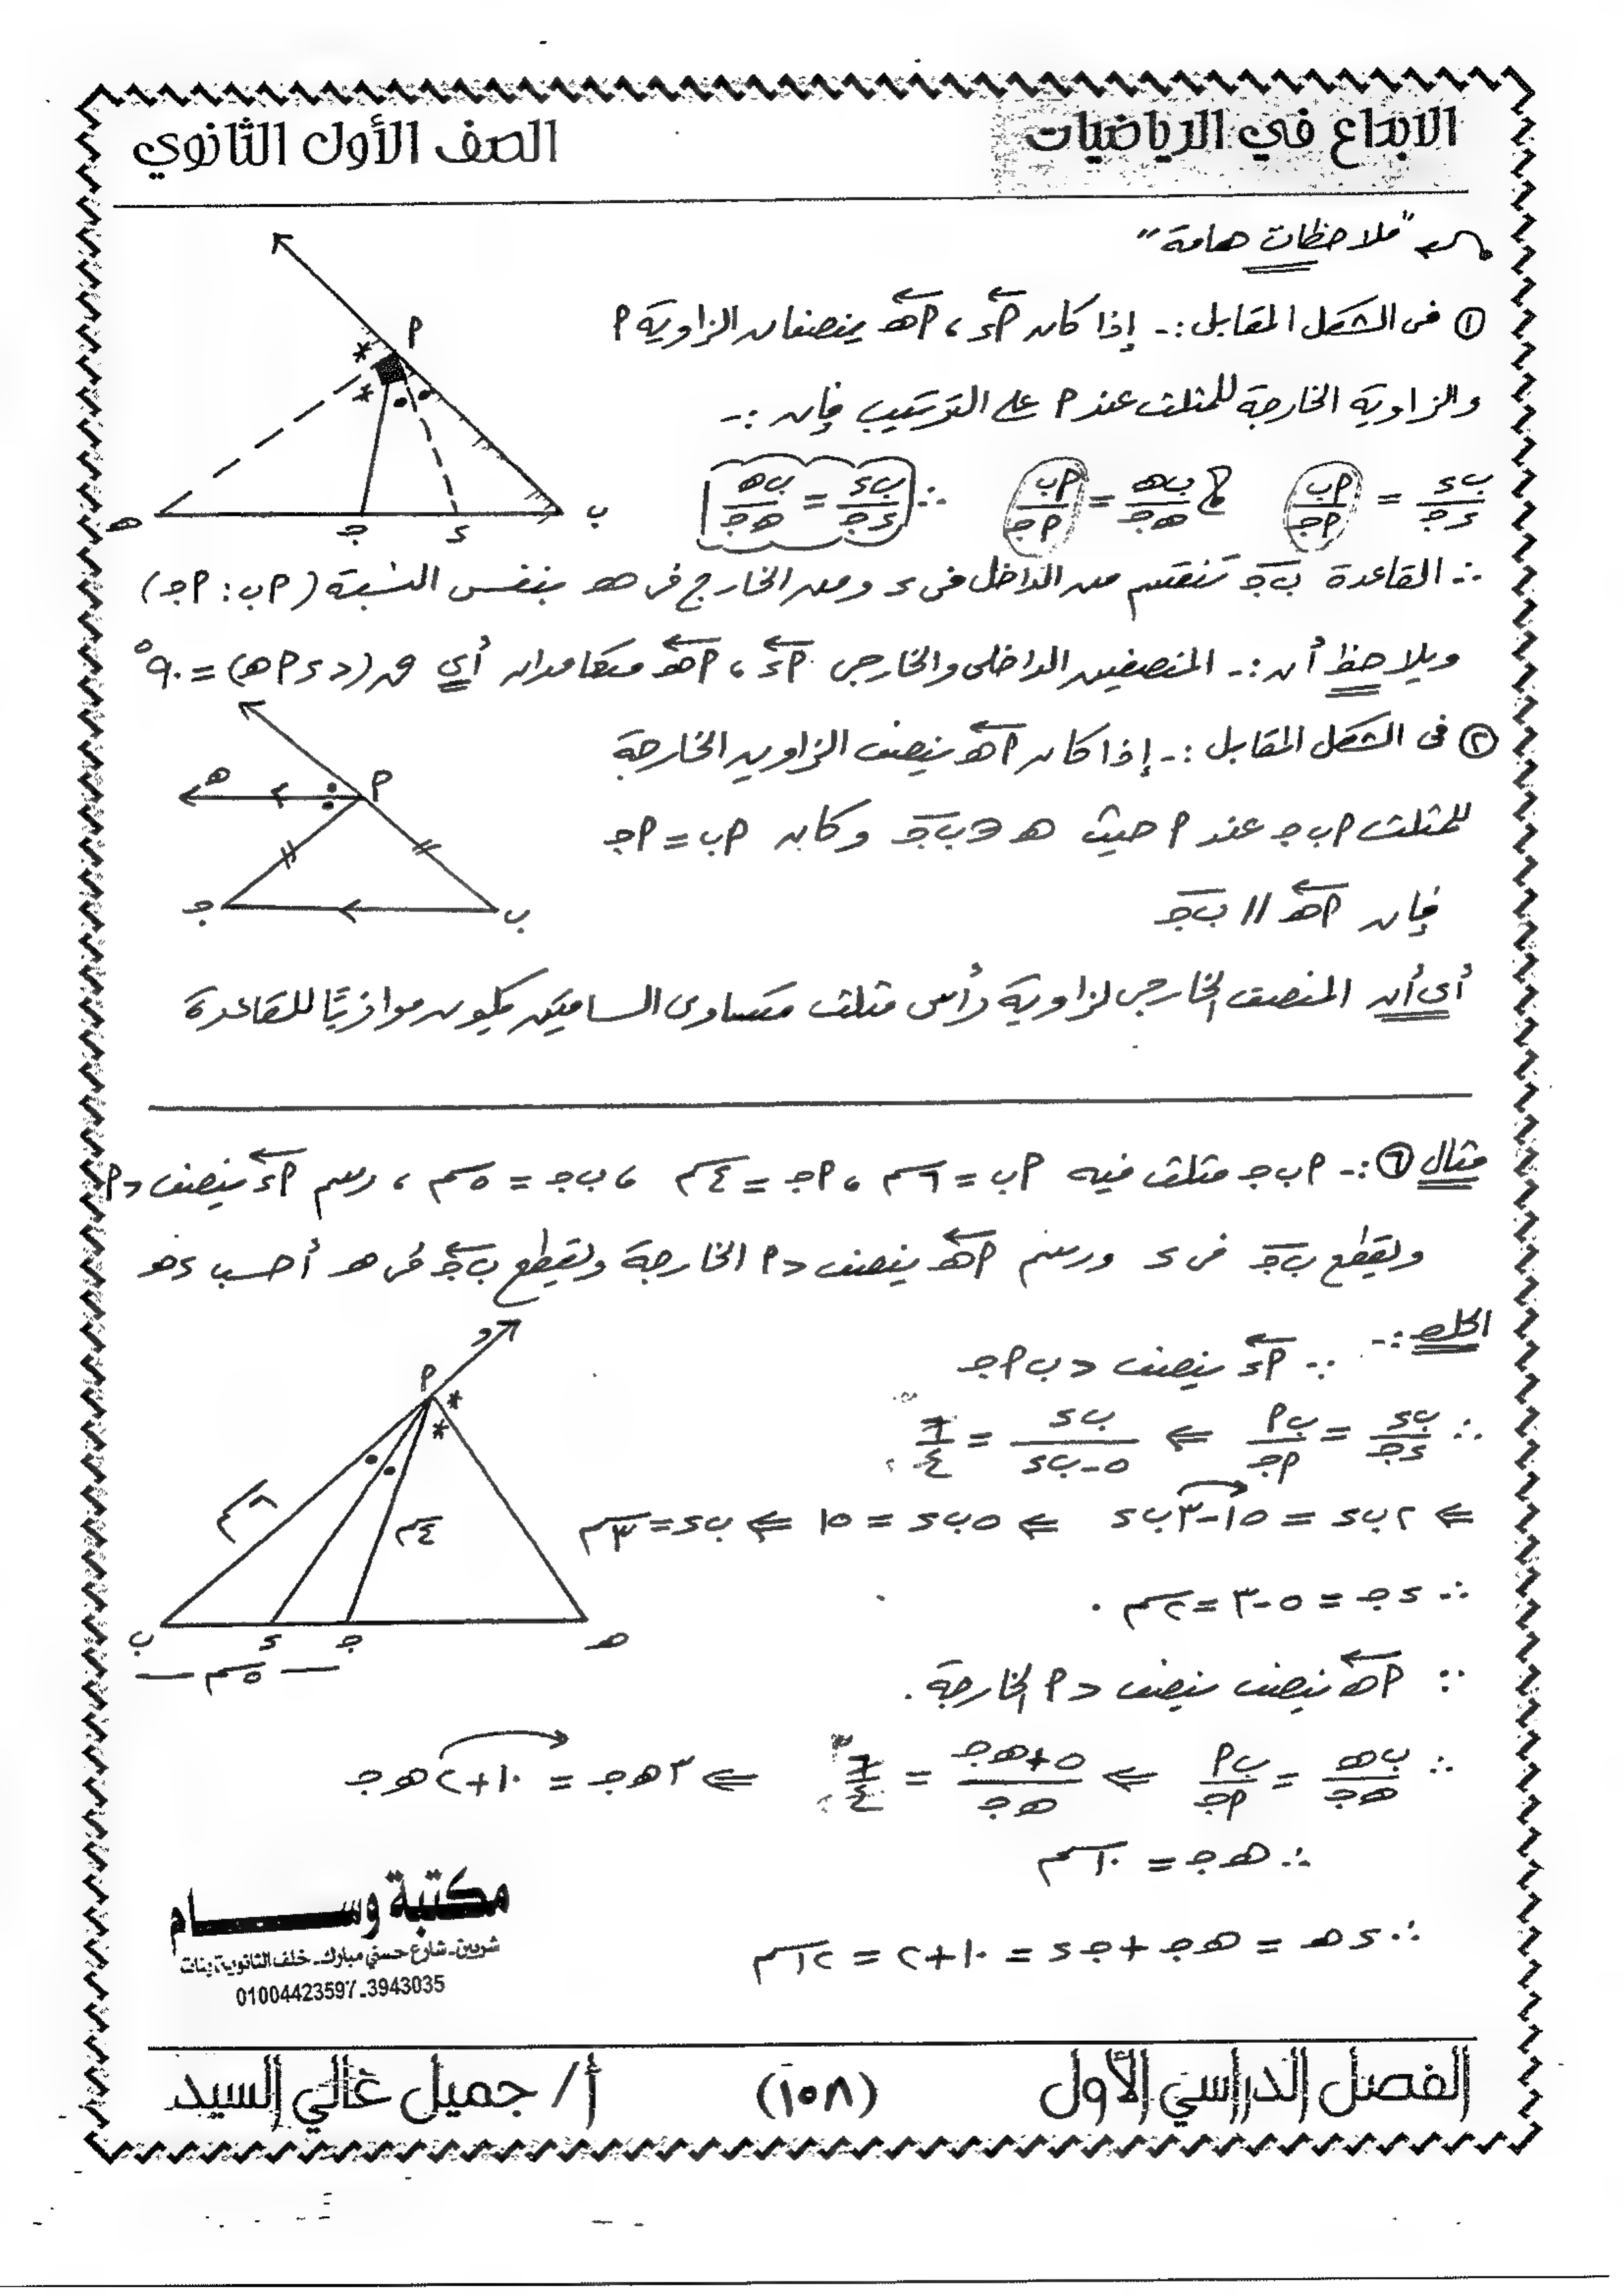 الابداع في الرياضيات
الصف الأول الثانوي
"ملاحظات هامة"
① فى الشكل المقابل :- إذا كان أء ، أهـ ينصفان الزاوية أ
والزاوية الخارجة للمثلث عند أ على الترتيب فإن :-
ب ء / ء جـ = أ ب / أ جـ ، ب هـ / هـ جـ = أ ب / أ جـ ∴ ب ء / ء جـ = ب هـ / هـ جـ
∴ القاعدة ب جـ تنقسم من الداخل فى ء ومن الخارج فى هـ بنفس النسبة (أ ب : أ جـ)
ويلاحظ أن :- المنصفين الداخلى والخارجى أء ، أهـ متعامدان أي ق(د ء أ هـ) = ٩٠°
أ
ب
ء
جـ
هـ
② فى الشكل المقابل :- إذا كان أهـ ينصف الزاوية الخارجة
للمثلث أ ب جـ عند أ حيث هـ ∋ ب جـ وكان أ ب = أ جـ
فإن أهـ // ب جـ
أى أن المنصف الخارجى لزاوية رأس مثلث متساوى الساقين يكون موازيًا للقاعدة
أ
هـ
ب
جـ
مثال ⑥ :- أ ب جـ مثلث فيه أ ب = ٦سم ، أ جـ = ٤سم ، ب جـ = ٥سم ، رسم أء ينصف د أ
ويقطع ب جـ فى ء ورسم أهـ ينصف د أ الخارجة ويقطع ب جـ فى هـ أحسب ء هـ
الحل :-
∵ أء ينصف د ب أ جـ
∴ ب ء / ء جـ = ب أ / أ جـ ⇐ ب ء / ٥ - ب ء = ٦ / ٤
⇐ ٢ ب ء = ١٥ - ٣ ب ء ⇐ ٥ ب ء = ١٥ ⇐ ب ء = ٣سم
∴ ء جـ = ٥ - ٣ = ٢سم
∵ أهـ ينصف ينصف د أ الخارجة .
∴ ب هـ / هـ جـ = ب أ / أ جـ ⇐ ٥ + هـ جـ / هـ جـ = ٦ / ٤ ⇐ ٣ هـ جـ = ١٠ + ٢ هـ جـ
∴ هـ جـ = ١٠سم
∴ ء هـ = هـ جـ + جـ ء = ١٠ + ٢ = ١٢سم
أ
٦سم
٤سم
ب
ء
جـ
هـ
٥سم
مكتبة وسام
شربين - شارع حسني مبارك - خلف الثانوية بنات
01004423597 - 3943035
الفصل الدراسي الأول
(١٠٨)
أ / جميل غالي السيد